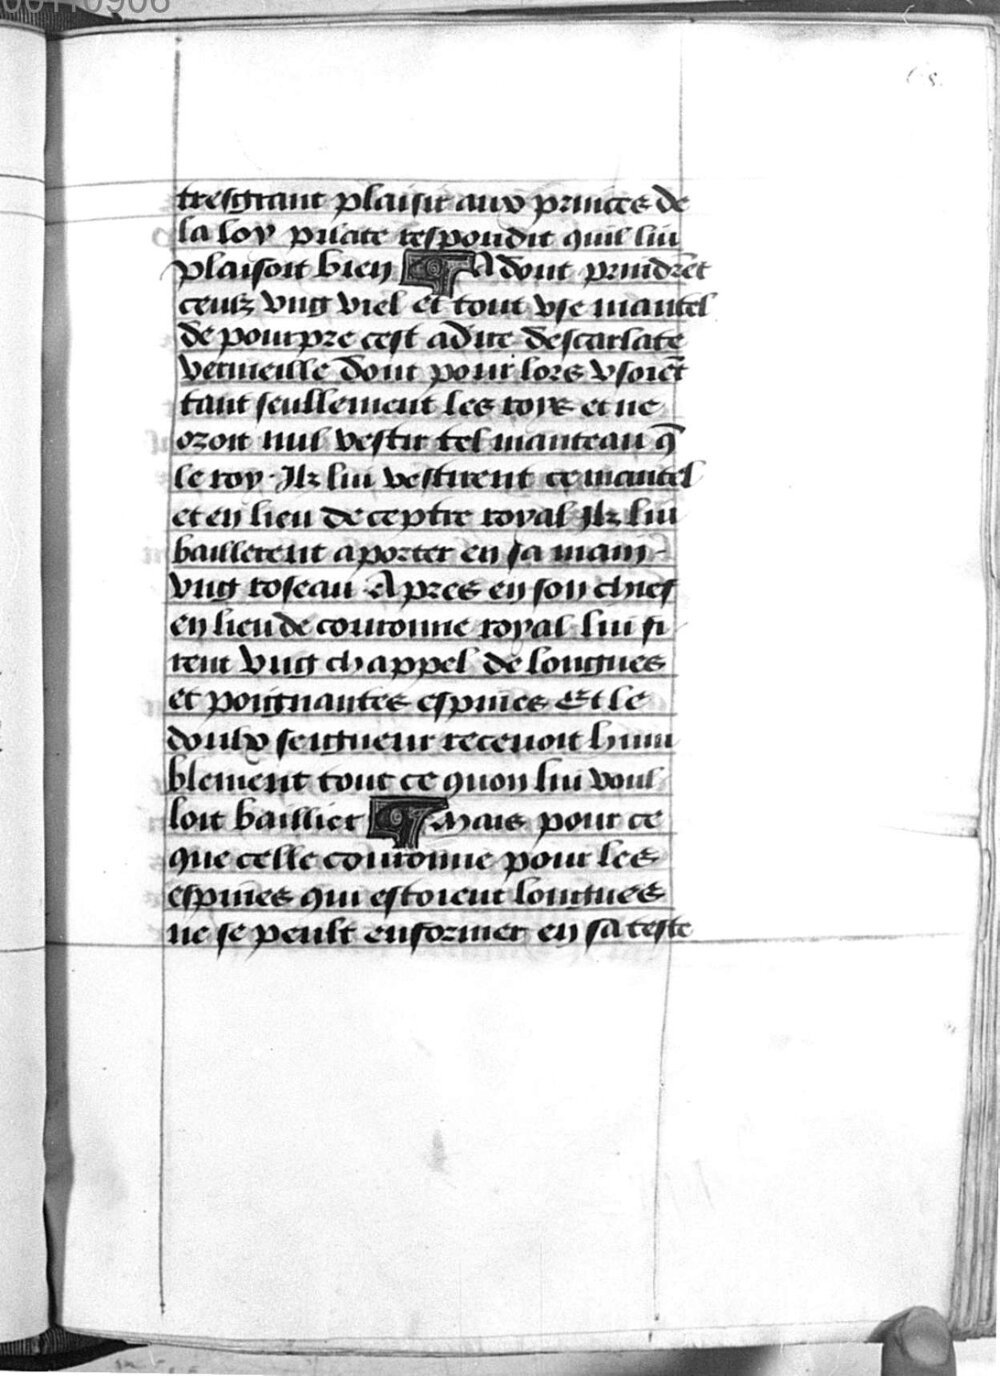 00110906
68.
tresgrant plaisir aux princes de
la loy pilate respondit quil lui
plaisoit bien ¶ Adont prindrēt
ceulz vng viel et tout vse mantel
de pourpre cest adire descarlate
vermeille dont pour lors vsoiēt
tant seullement les roys et ne
ozoit nul vestir tel manteau q̄
le roy. Ilz lui vestirent ce mantel
et en lieu de ceptre royal Ilz lui
baillerent a porter en sa main
vng roseau Apres en son chief
en lieu de couronne royal lui fi
rent vng chappel de longues
et poignantes espines Et le
doulx seigneur receuoit hum
blement tout ce quon lui voul
loit baillier ¶ Mais pour ce
que celle couronne pour les
espines qui estoient longues
ne se peult enformer en sa teste